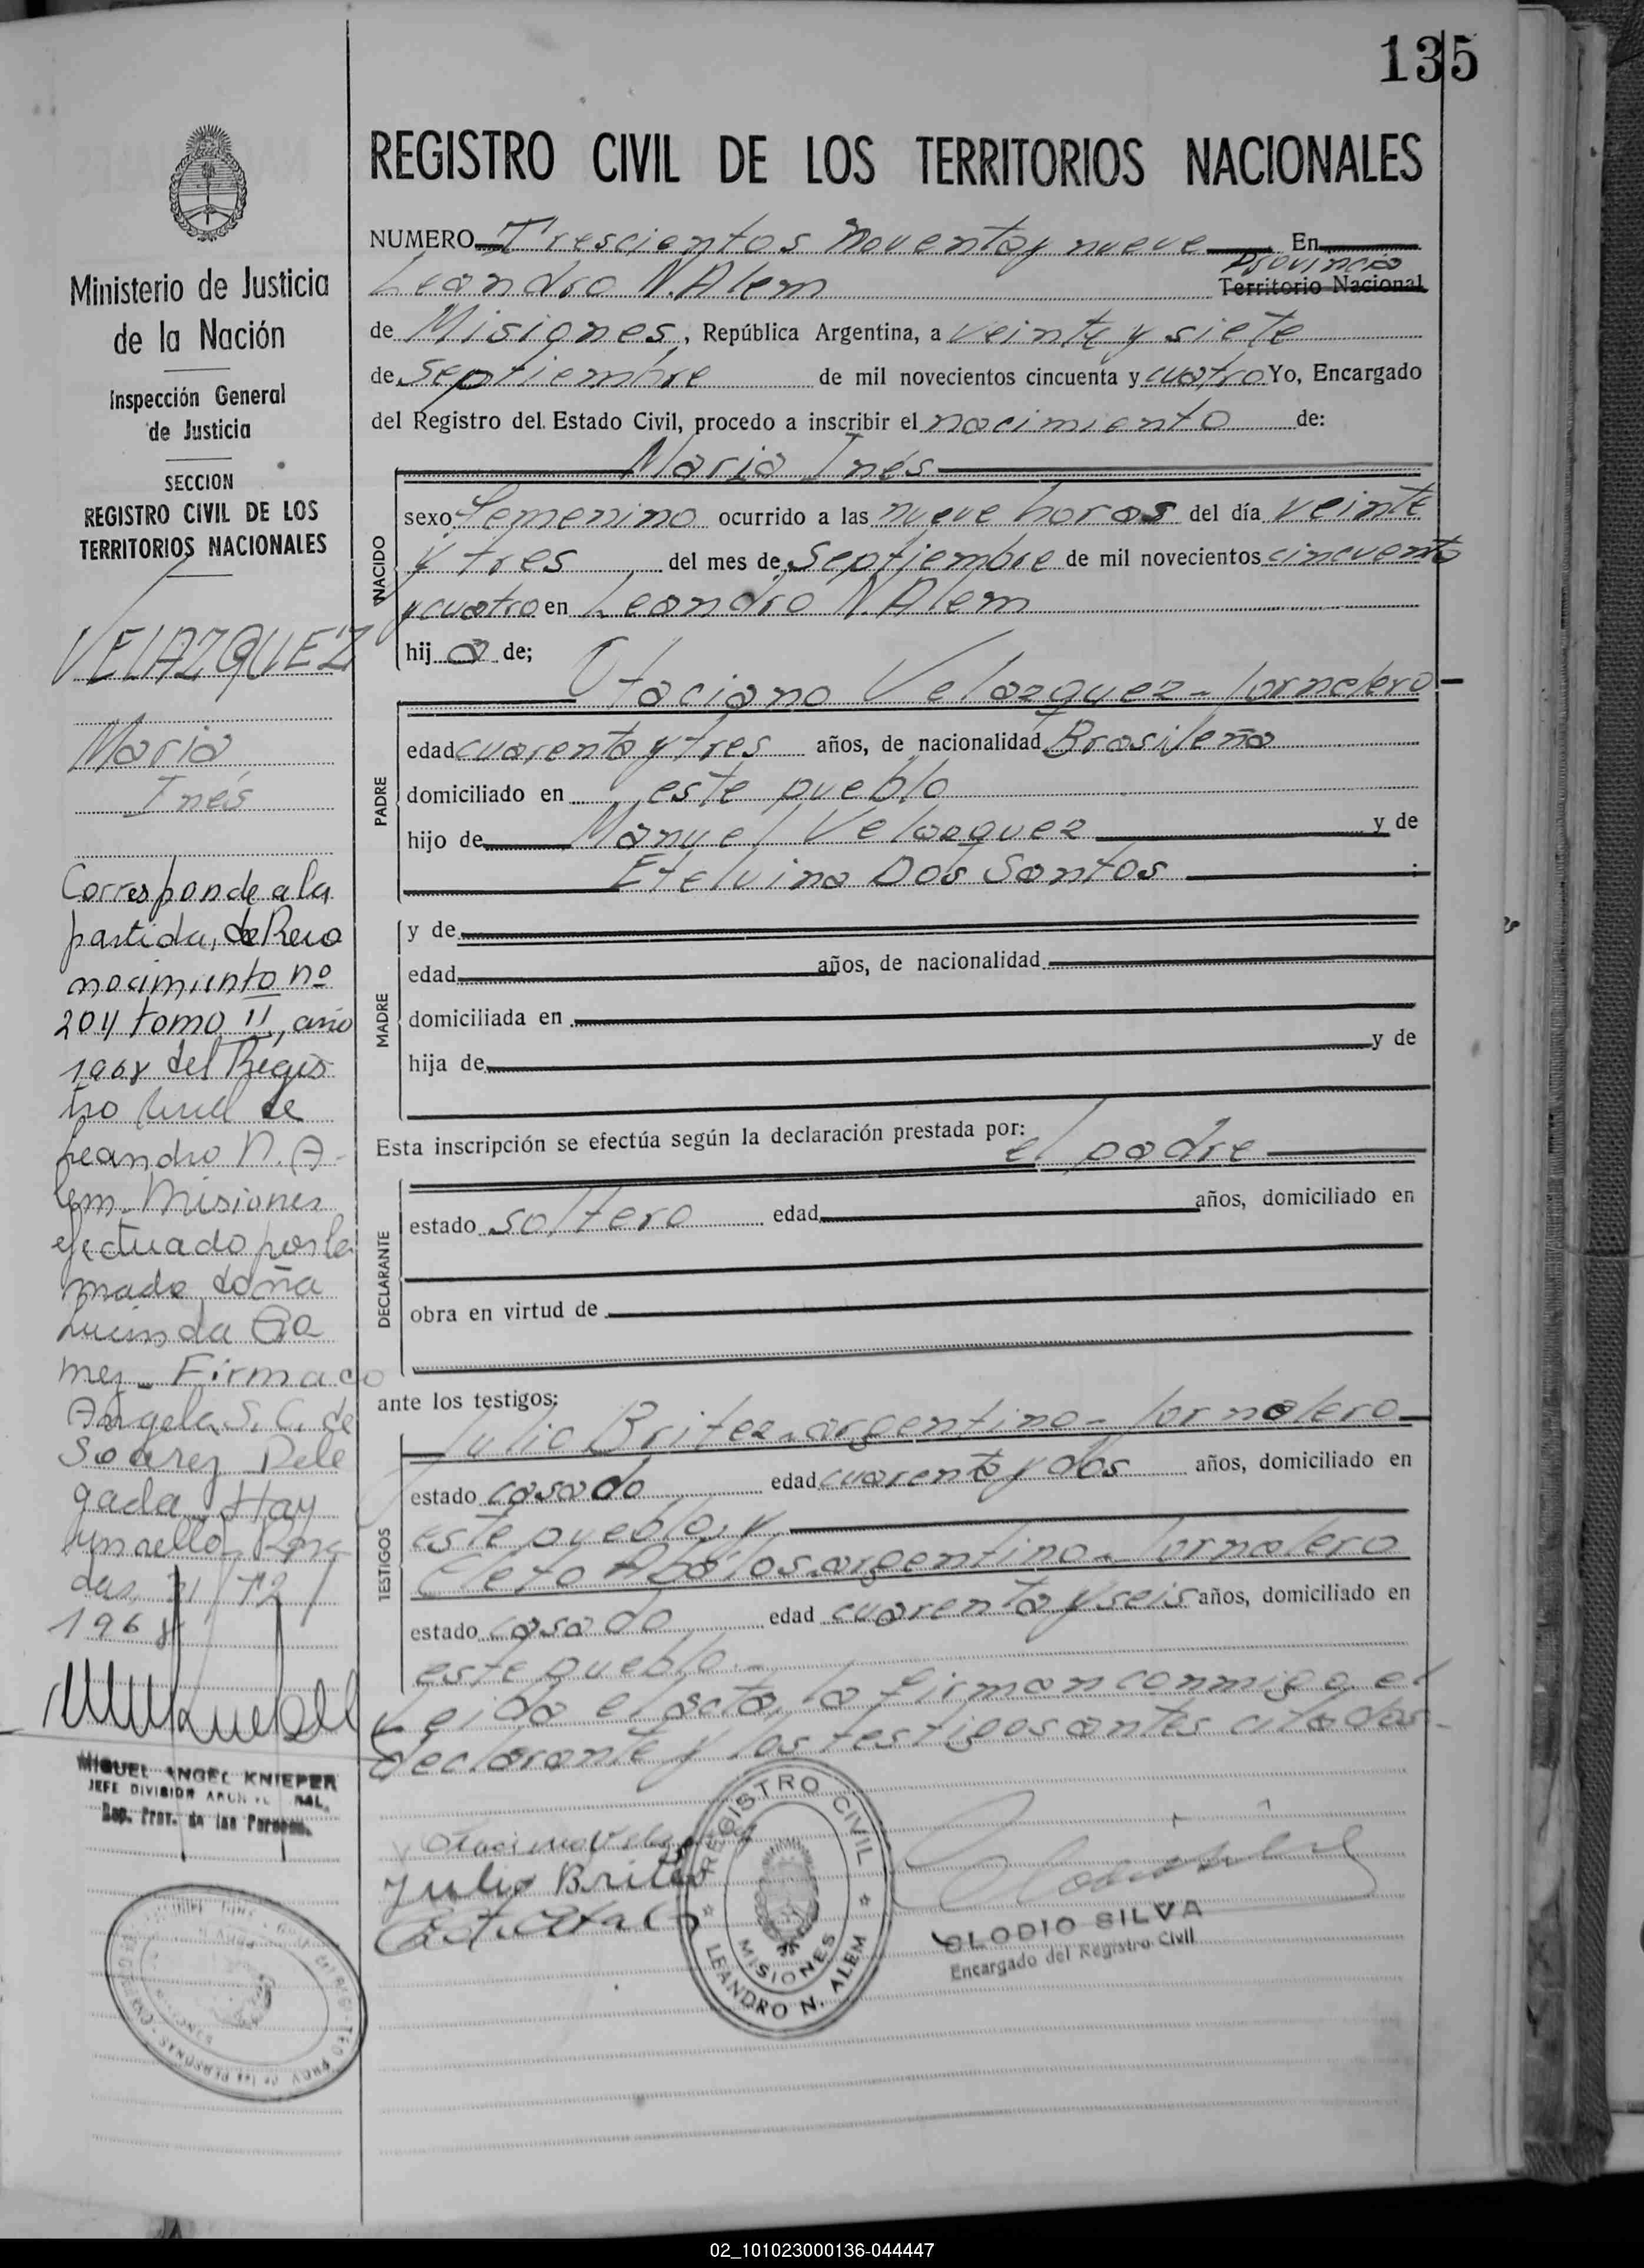 135
REGISTRO CIVIL DE LOS TERRITORIOS NACIONALES
NUMERO Trescientos noventa y nueve En
Provincia
Leandro N. Alem Territorio Nacional
de Misiones, República Argentina, a veinte y siete
de Septiembre de mil novecientos cincuenta y cuatro Yo, Encargado
del Registro del Estado Civil, procedo a inscribir el nacimiento de:
Maria Inés
NACIDO
sexo Femenino ocurrido a las nueve horas del día veinte
y tres del mes de Septiembre de mil novecientos cincuenta
y cuatro en Leandro N. Alem
hija de;
Otaciano Velazquez - Jornalero
PADRE
edad cuarenta y tres años, de nacionalidad Brasileña
domiciliado en este pueblo
hijo de Manuel Velazquez y de
Etelvina Dos Santos :
MADRE
y de
edad años, de nacionalidad
domiciliada en
hija de y de
Esta inscripción se efectúa según la declaración prestada por:
el padre
DECLARANTE
estado soltero edad años, domiciliado en
obra en virtud de
ante los testigos:
Julio Britez - argentino - Jornalero
TESTIGOS
estado casado edad cuarenta y dos años, domiciliado en
este pueblo, y
Cleto Abalos argentino - Jornalero
estado casado edad cuarenta y seis años, domiciliado en
este pueblo.-
Leida el acta, la firman conmigo, el
declarante y los testigos antes citados.-
Julio Britez
REGISTRO CIVIL
MISIONES
LEANDRO N. ALEM
CLODIO SILVA
Encargado del Registro Civil
Ministerio de Justicia
de la Nación
Inspección General
de Justicia
SECCION
REGISTRO CIVIL DE LOS
TERRITORIOS NACIONALES
VELAZQUEZ
Maria
Inés
Corresponde a la
partida, de Reco
nocimiento nº
204 tomo II, año
1968 del Regis
tro Civil de
Leandro N. A-
lem - Misiones
efectuado por la
madre doña
Lucinda Go
mez - Firmado
Angela S. C. de
Soarez Dele
gada. Hay
un sello. Posa
das, 31/12/
1968
MIGUEL ANGEL KNIEPER
JEFE DIVISION ARCH. GRAL.
Reg. Prov. de las Personas.
02_101023000136-044447